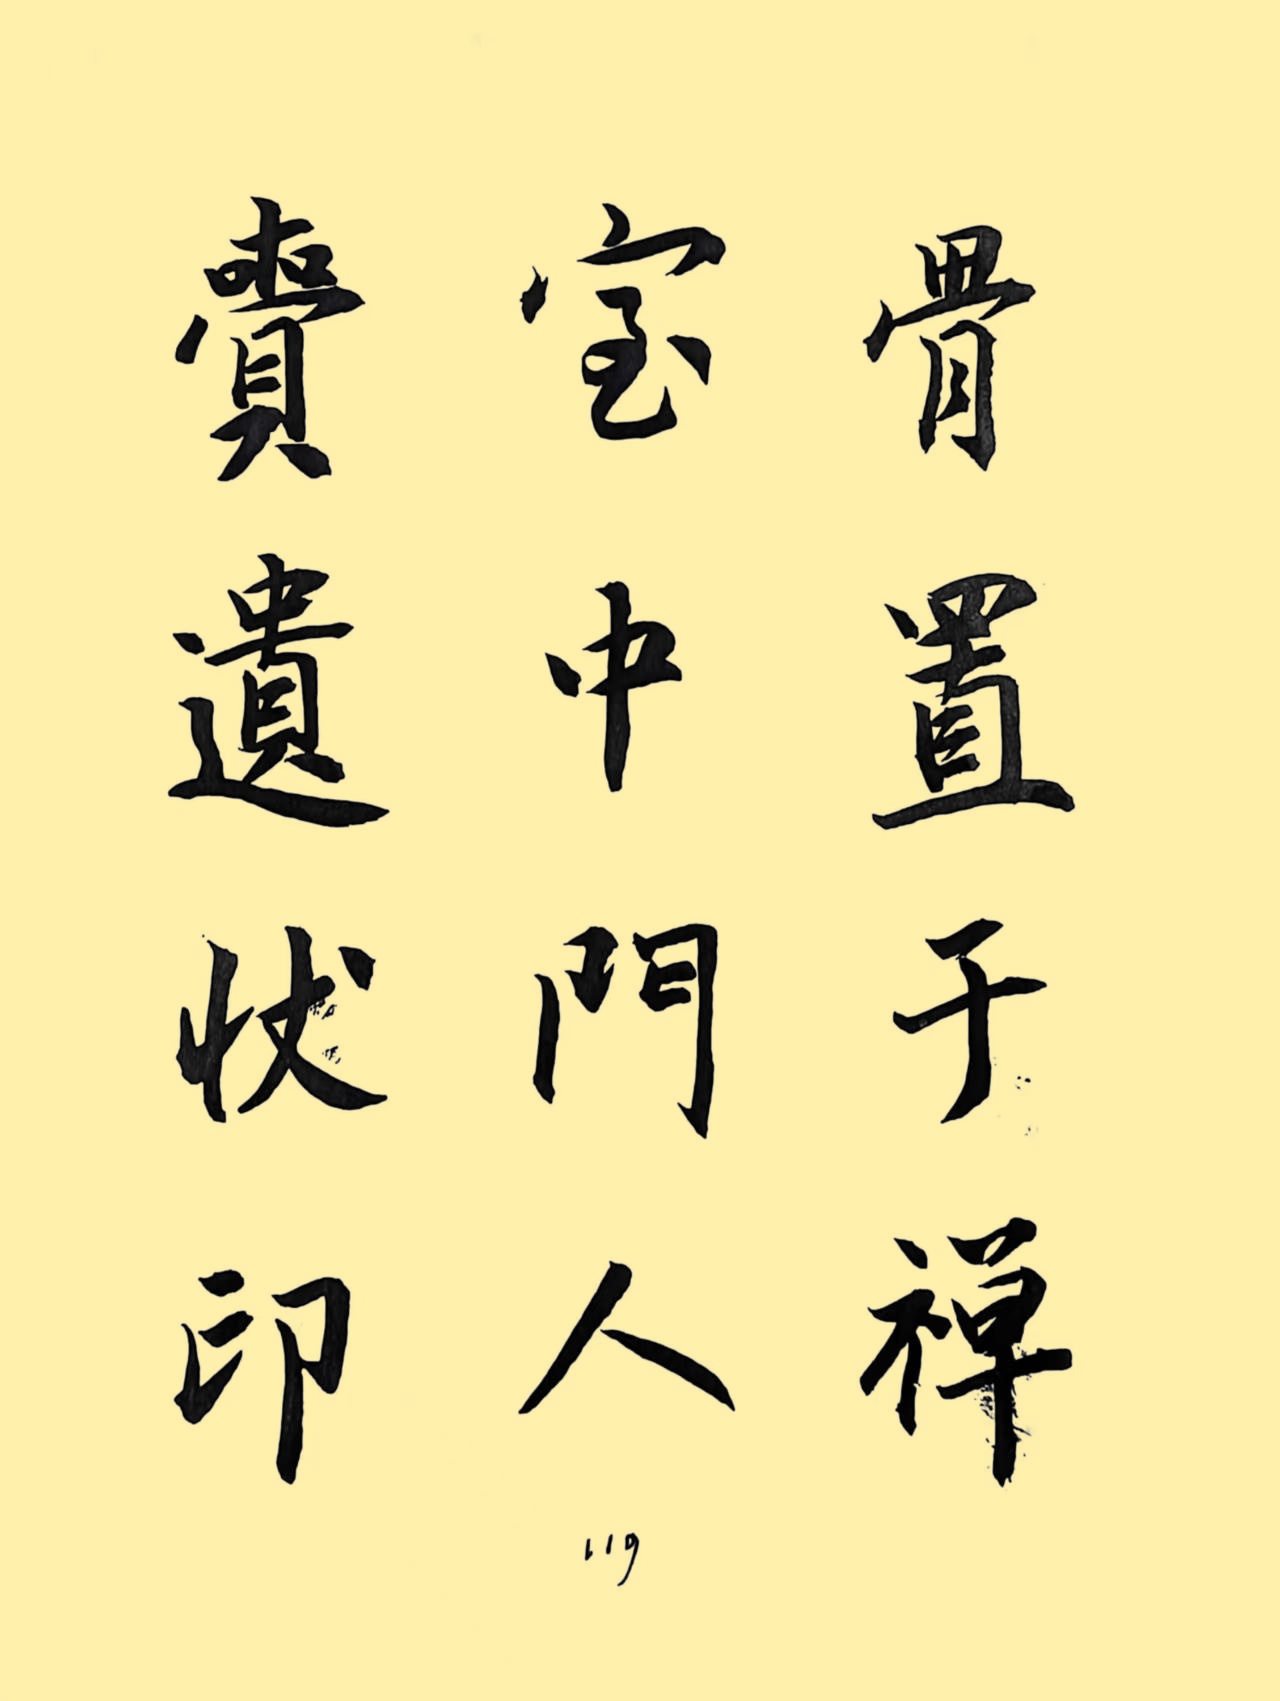 骨置于禪
室中門人
賫遺狀印
119